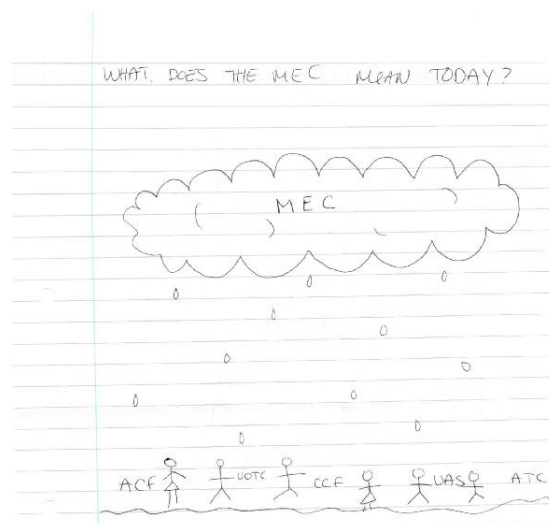 WHAT DOES THE MEC MEAN TODAY?
MEC
ACF UOTC CCF UAS ATC